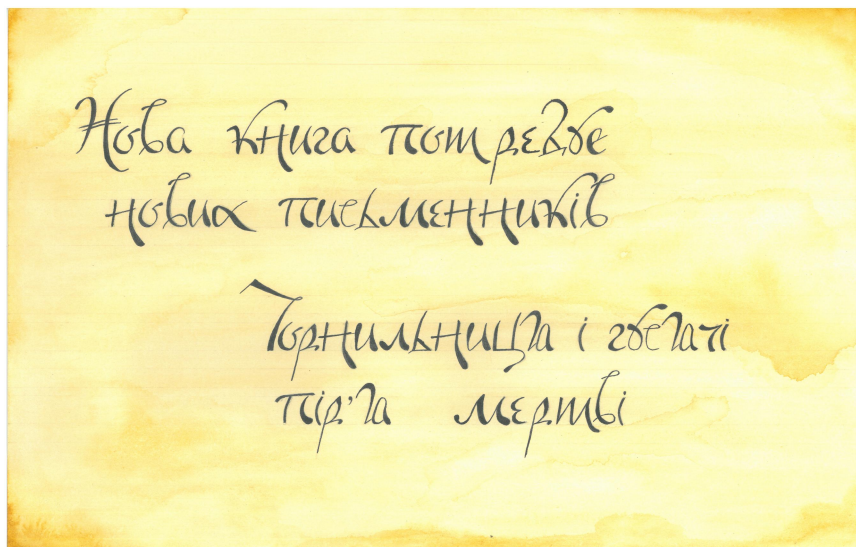 Нова книга потребує
нових письменників
Чорнильниця і гусячі
пір'я мертві